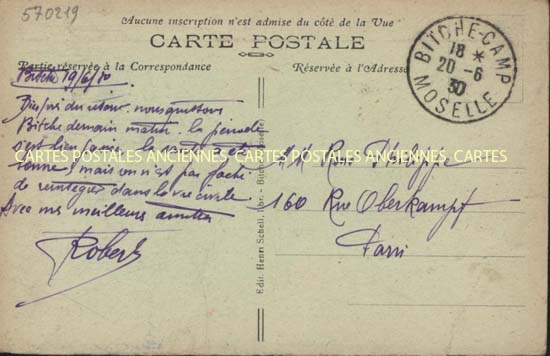 570219
Aucune inscription n'est admise du côté de la Vue
CARTE POSTALE
Partie réservée à la Correspondance
Réservée à l'Adresse
BITCHE-CAMP
18 *
20-6
30
MOSELLE
Bitche 19/6/30
du retour, nous quittons
Bitche demain matin. la période
s'est bien
CARTES POSTALES ANCIENNES CARTES POSTALES ANCIENNES CARTES POSTALES ANCIENNES CARTES
mais on n'est pas faché
de reintegrer dans la vie civile
Avec mes meilleurs amitiés
Robert
Edit. Henri Scheil, Ibr. - Bitche (Moselle)
Philippe
160 Rue Oberkampf
Paris